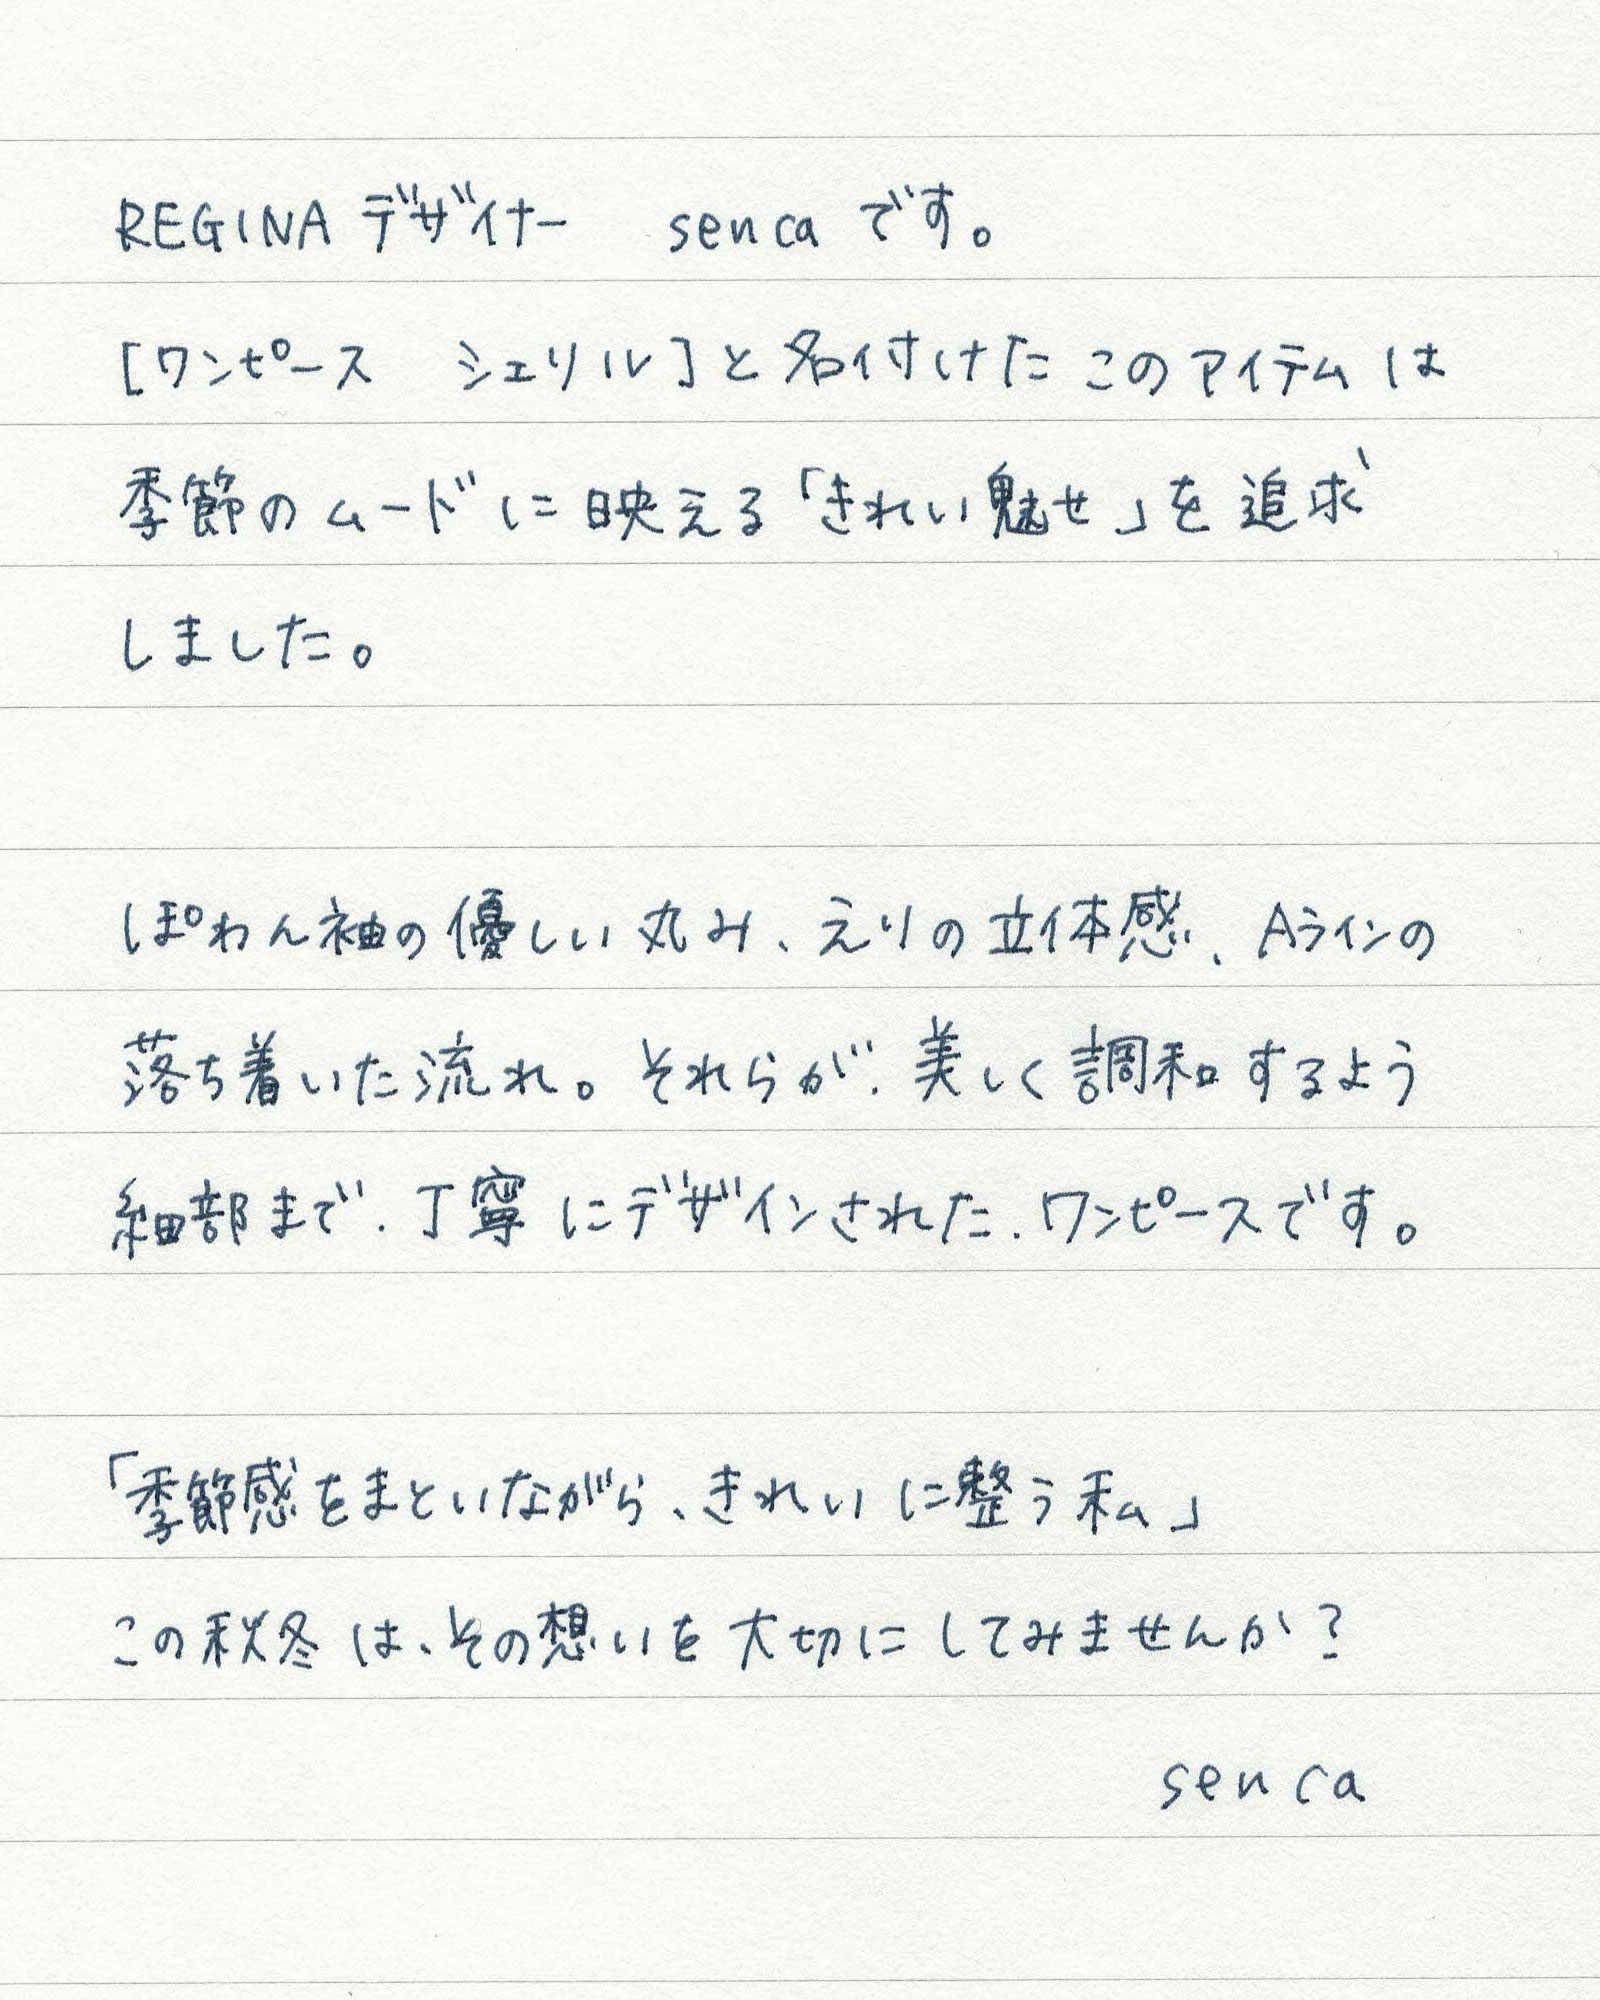 REGINA デザイナー　senca です。
[ワンピース　シェリル]と名付けたこのアイテムは
季節のムードに映える「きれい魅せ」を追求
しました。
ぽわん袖の優しい丸み、えりの立体感、Aラインの
落ち着いた流れ。それらが、美しく調和するよう
細部まで、丁寧にデザインされた、ワンピースです。
「季節感をまといながら、きれいに整う私」
この秋冬は、その想いを大切にしてみませんか？
senca